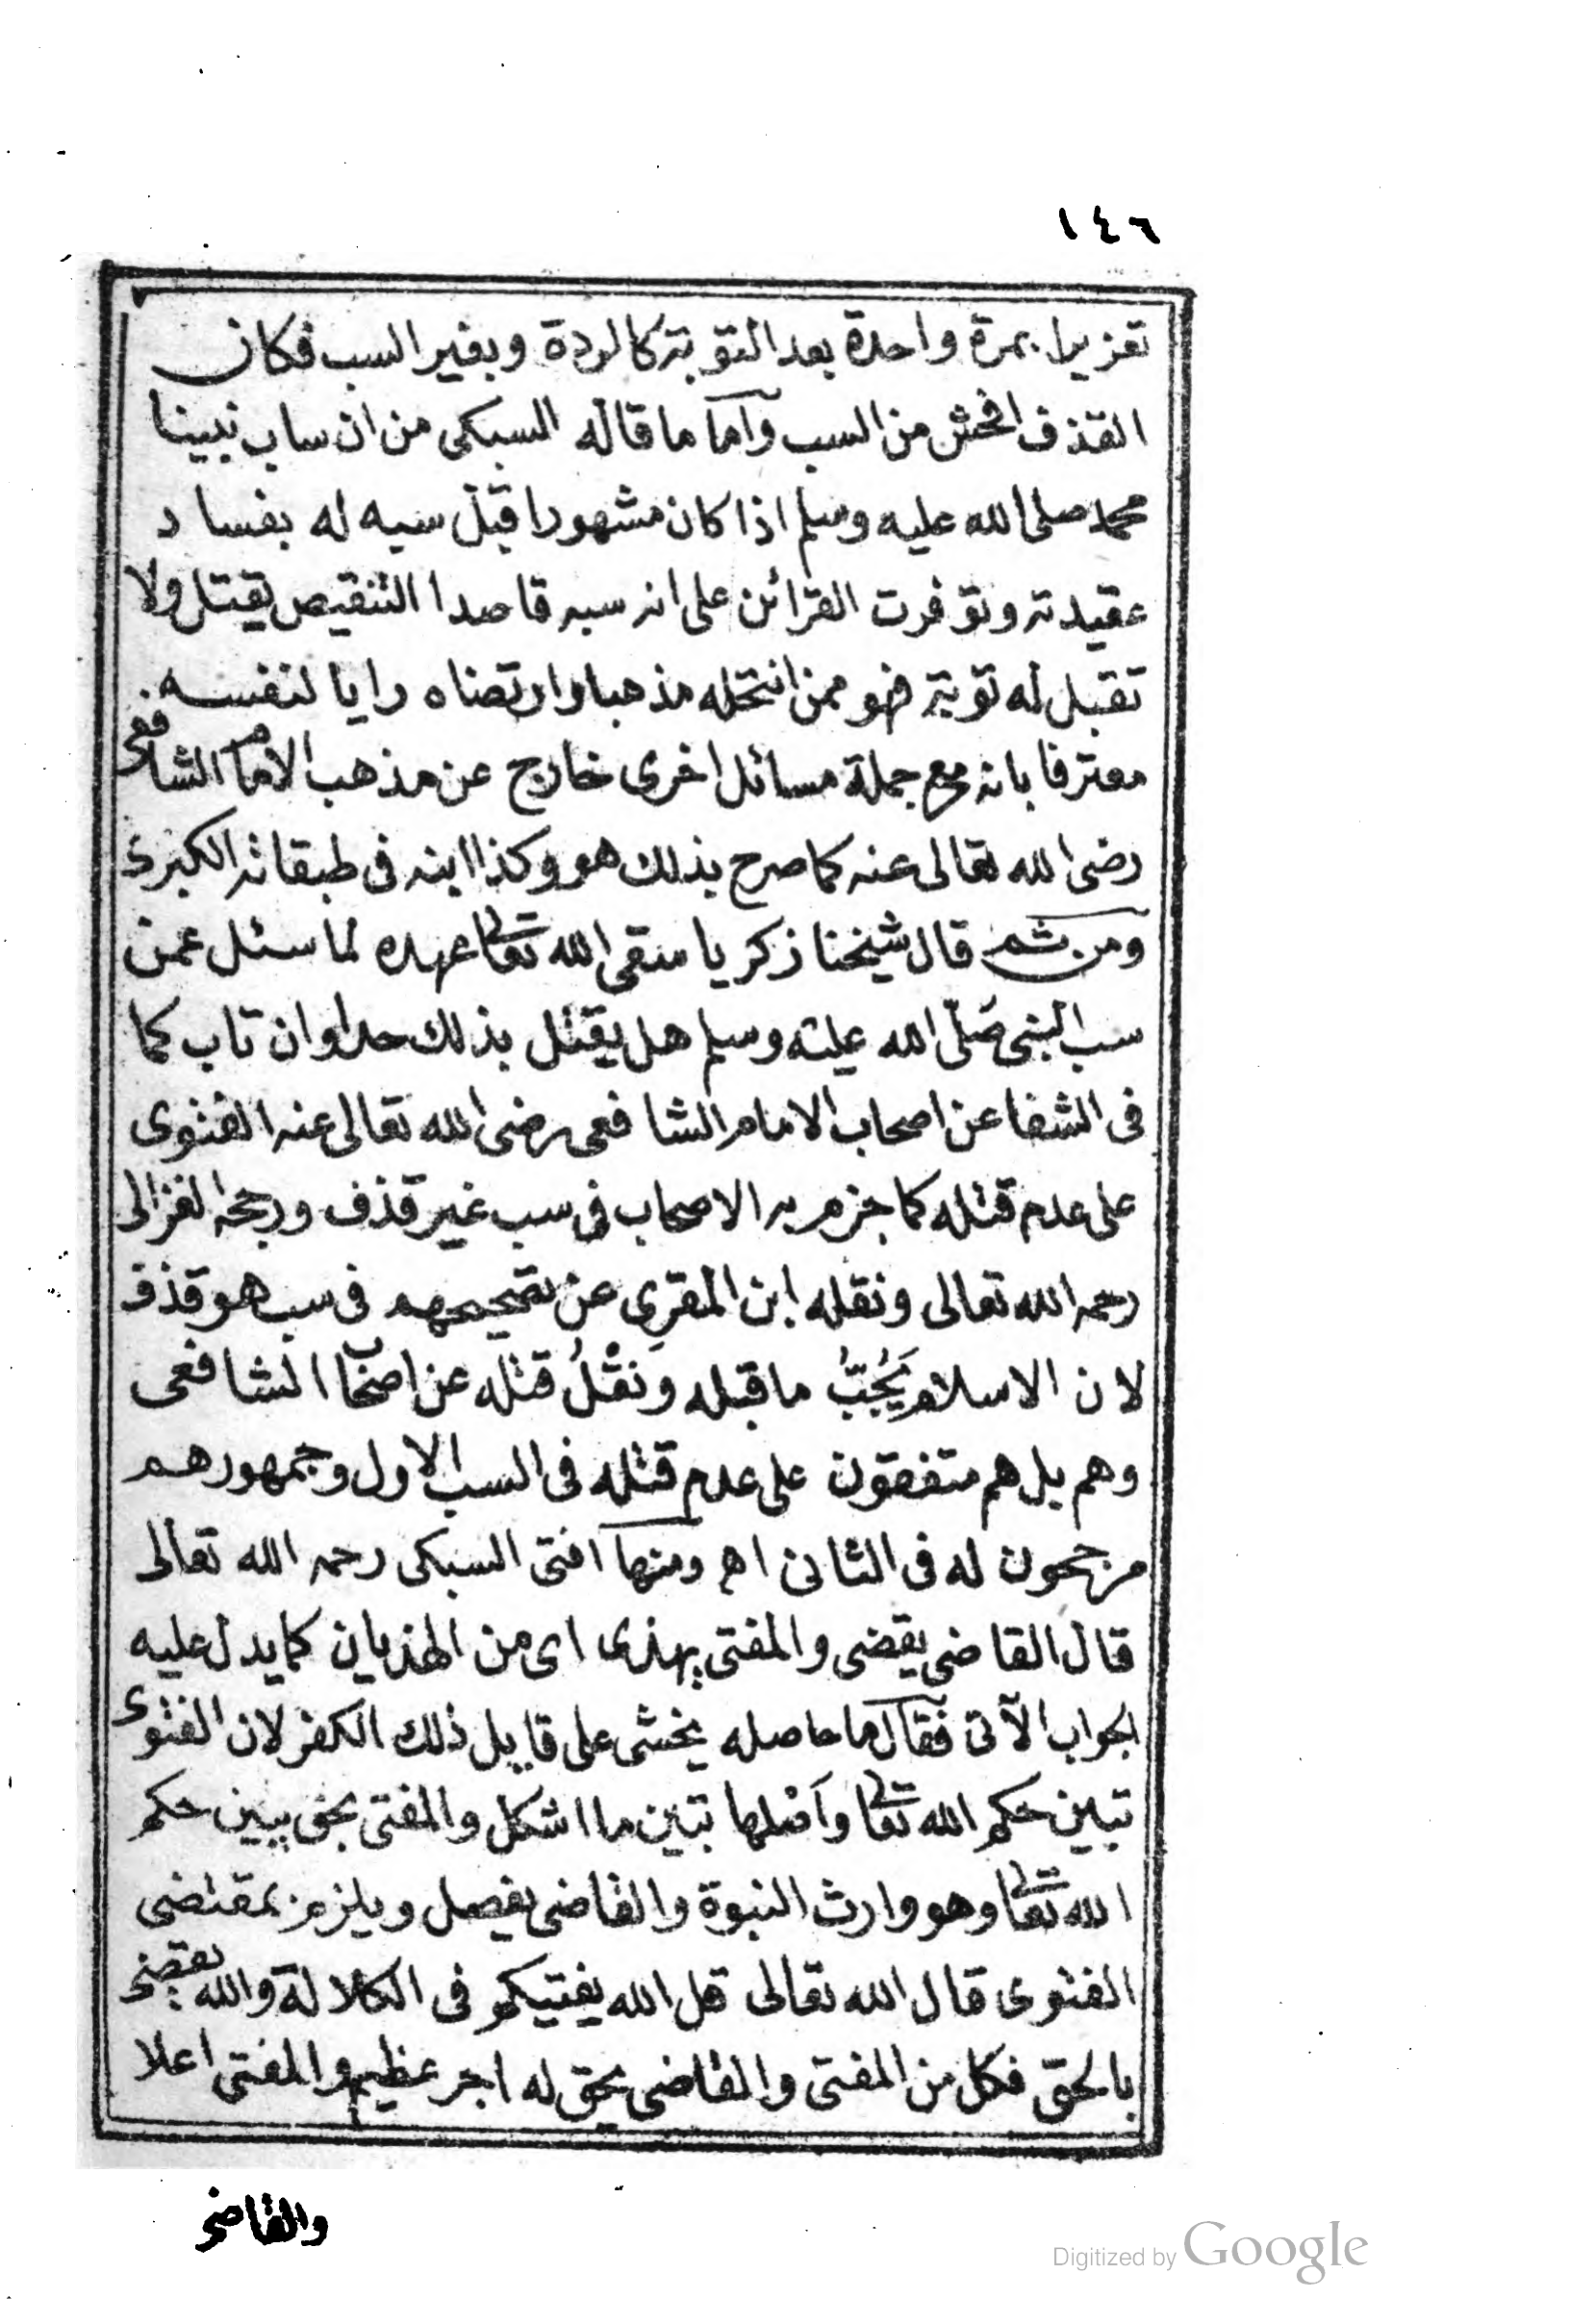 ١٤٦
تعزيرا بمرة واحدة بعد التوبة كالردة وبغير السب فكان
القذف افحش من السب وآما ما قاله السبكى من ان ساب نبينا
محمد صلى الله عليه وسلم اذا كان مشهورا قبل سبه له بفساد
عقيدته وتوفرت القرائن على انه سبه قاصدا التنقيص يقتل ولا
تقبل له توبة فهو ممن انتحله مذهبا وارتضاه رايا لنفسه
معترفا بانه مع جملة مسائل اخرى خارج عن مذهب الامام الشافعى
رضى الله تعالى عنه كما صرح بذلك هو وكذا ابنه فى طبقاته الكبرى
ومن ثم قال شيخنا زكريا سقى الله تعالى عهده لما سئل عمن
سب النبى صلّى الله عليه وسلم هل يقتل بذلك حدا وان تاب كما
فى الشفا عن اصحاب الامام الشافعى رضى الله تعالى عنه الفتوى
على عدم قتله كما جزم به الاصحاب فى سب غير قذف ورجحه الغزالى
رحمه الله تعالى ونقله ابن المقرى عن تصحيحهم فى سب هو قذف
لان الاسلام يَجُبُّ ما قبله ونقْلُ قتله عن اصحاب الشافعى
وهم بل هم متفقون على عدم قتله فى السب الاول وجمهورهم
مرجحون له فى الثانى اهـ ومنها افتى السبكى رحمه الله تعالى
قال القاضى يقضى والمفتى يهذى اى من الهذيان كما يدل عليه
الجواب الآتى فقال ما حاصله يخشى على قايل ذلك الكفر لان الفتوى
تبيين حكم الله تعالى وآصلها تبين ما اشكل والمفتى بحق يبين حكم
الله تعالى وهو وارث النبوة والقاضى يفصل ويلزم بمقتضى
الفتوى قال الله تعالى قل الله يفتيكم فى الكلالة والله يقضى
بالحق فكل من المفتى والقاضى بحق له اجر عظيم والمفتى اعلا
والقاضى
Digitized by Google